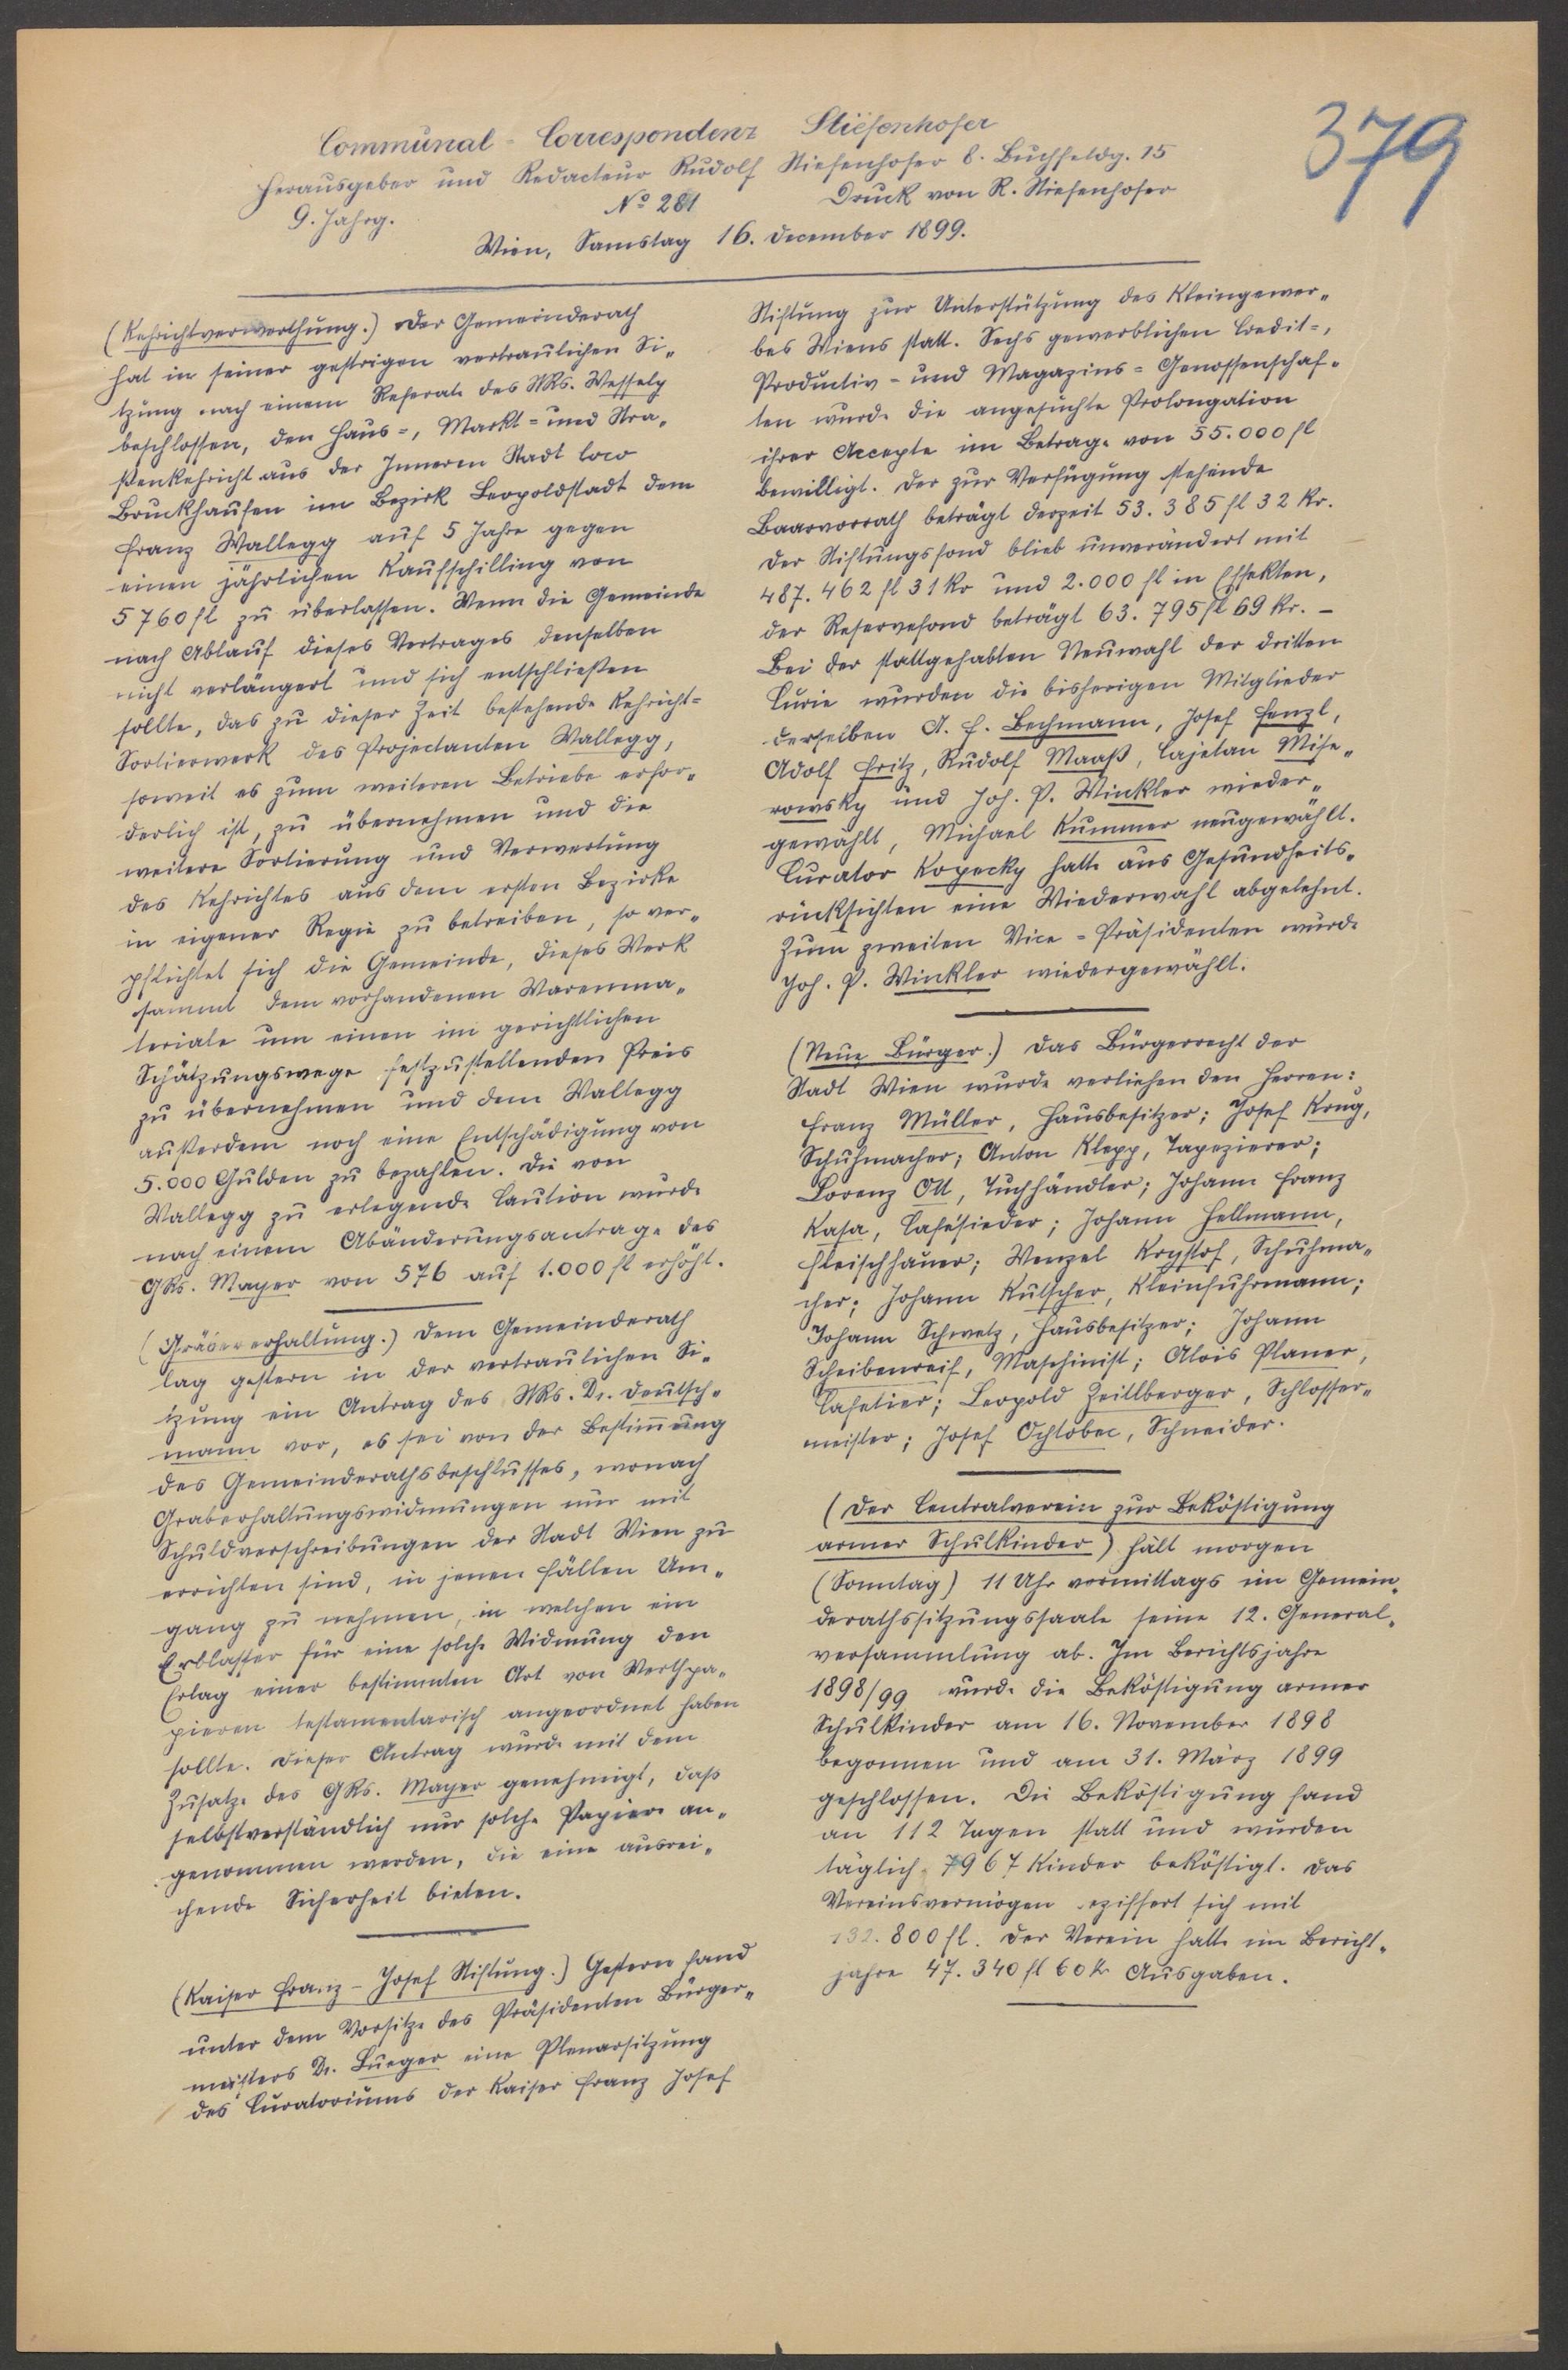 379
Communal-Correspondenz Stiefenhofer
Herausgeber und Redacteur Rudolf Stiefenhofer 8. Buchfeldg. 15
9. Jahrg. No 281 Druck von R. Stiefenhofer
Wien, Samstag 16. December 1899.
(Kehrichtverwerthung.) Der Gemeinderath
hat in seiner gestrigen vertraulichen Si-
tzung nach einem Referate des StRs. Wessely
beschlossen, den Haus-, Markt- und Stra-
ßenkehricht aus der Inneren Stadt loco
Bruckhaufen im Bezirk Leopoldstadt dem
Franz Wallegg auf 5 Jahre gegen
einen jährlichen Kaufschilling von
5760 fl zu überlassen. Wenn die Gemeinde
nach Ablauf dieses Vertrages denselben
nicht verlängert und sich entschließen
sollte, das zu dieser Zeit bestehende Kehricht-
Sortierwerk des Projectanten Wallegg,
soweit es zum weiteren Betriebe erfor-
derlich ist, zu übernehmen und die
weitere Sortierung und Verwertung
des Kehrichtes aus dem ersten Bezirke
in eigener Regie zu betreiben, so ver-
pflichtet sich die Gemeinde, dieses Werk
sammt dem vorhandenen Warenma-
teriale um einen im gerichtlichen
Schätzungswege festzustellenden Preis
zu übernehmen und dem Wallegg
außerdem noch eine Entschädigung von
5.000 Gulden zu bezahlen. Die von
Wallegg zu erlegende Caution wurde
nach einem Abänderungsantrage des
GRs. Mayer von 576 auf 1.000 fl erhöht.
(Gräbererhaltung.) Dem Gemeinderath
lag gestern in der vertraulichen Si-
tzung ein Antrag des StRs. Dr. Deutsch-
mann vor, es sei von der Bestim̅ung
des Gemeinderathsbeschlusses, wonach
Graberhaltungswidmungen nur mit
Schuldverschreibungen der Stadt Wien zu
errichten sind, in jenen Fällen Um-
gang zu nehmen, in welchen ein
Erblasser für eine solche Widmung den
Erlag einer bestimmten Art von Werthpa-
pieren testamentarisch angeordnet haben
sollte. Dieser Antrag wurde mit dem
Zusatze des GRs. Mayer genehmigt, daß
selbstverständlich nur solche Papiere an-
genommen werden, die eine ausrei-
chende Sicherheit bieten.
(Kaiser Franz-Josef Stiftung.) Gestern fand
unter dem Vorsitze des Präsidenten Bürger-
meisters Dr. Lueger eine Plenarsitzung
des Curatoriums der Kaiser Franz Josef
Stiftung zur Unterstützung des Kleingewer-
bes Wiens statt. Sechs gewerblichen Credit-,
Productiv- und Magazins-Genossenschaf-
ten wurde die angesuchte Prolongation
ihrer Accepte im Betrage von 55.000 fl
bewilligt. Der zur Verfügung stehende
Baarvorrath beträgt derzeit 53.385 fl 32 Kr.
Der Stiftungsfond blieb unverändert mit
487.462 fl 31 Kr und 2.000 fl in Effekten,
der Reservefond beträgt 63.795 fl 69 Kr. -
Bei der stattgehabten Neuwahl der dritten
Curie wurden die bisherigen Mitglieder
derselben A. F. Bechmann, Josef Fenzl,
Adolf Fritz, Rudolf Maaß, Cajetan Mise-
rowsky und Joh. P. Winkler wieder-
gewählt, Michael Kummer neugewählt.
Curator Kopecky hatte aus Gesundheits-
rücksichten eine Wiederwahl abgelehnt.
Zum zweiten Vice-Präsidenten wurde
Joh. P. Winkler wiedergewählt.
(Neue Bürger.) Das Bürgerrecht der
Stadt Wien wurde verliehen den Herren:
Franz Müller, Hausbesitzer; Josef Krug,
Schuhmacher; Anton Klepp, Tapezierer;
Lorenz Ott, Tuchhändler; Johann Franz
Kasa, Cafésieder; Johann Hellmann,
Fleischhauer; Wenzel Krystof, Schuhma-
cher; Johann Kutscher, Kleinfuhrmann;
Johann Schwetz, Hausbesitzer; Johann
Scheibenreif, Maschinist; Alois Planer,
Cafetier; Leopold Zeillberger, Schlosser-
meister; Josef Ochtobec, Schneider.
(Der Centralverein zur Beköstigung
armer Schulkinder) hält morgen
(Sonntag) 11 Uhr vormittags im Gemein-
derathssitzungssaale seine 12. General-
versammlung ab. Im Berichtsjahre
1898/99 wurde die Beköstigung armer
Schulkinder am 16. November 1898
begonnen und am 31. März 1899
geschlossen. Die Beköstigung fand
an 112 Tagen statt und wurden
täglich 7967 Kinder beköstigt. Das
Vereinsvermögen beziffert sich mit
132.800 fl. Der Verein hatte im Bericht-
jahre 47.340 fl 60 Kr Ausgaben.